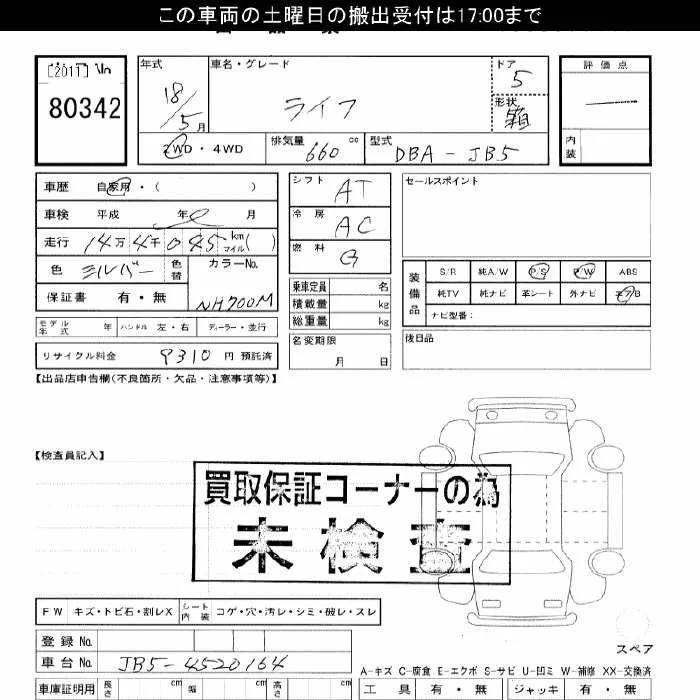 この車両の土曜日の搬出受付は17:00まで
[2011] No
80342
年式 車名・グレード ドア 評価点
18/5 月 ライフ 5
形状 箱
2WD・4WD 排気量 660 cc 型式 DBA-JB5 内装
車歴 自家用・( ) シフト AT セールスポイント
車検 平成 年 月 冷房 AC
走行 14万4千045 km マイル( ) 燃料 G
色 シルバー 色替 カラーNo. NH700M
保証書 有・無
乗車定員 名
積載量 kg
総重量 kg
装備品 S/R 純A/W P/S P/W ABS
純TV 純ナビ 革シート 外ナビ エアB
ナビ型番:
モデル年式 年 ハンドル 左・右 ディーラー・並行
名変期限 月 日
後日品
リサイクル料金 9310 円 預託済
【出品店申告欄(不良箇所・欠品・注意事項等)】
【検査員記入】
買取保証コーナーの為
未検査
FW キズ・トビ石・割レX シート内装 コゲ・穴・汚レ・シミ・破レ・スレ
登録 No
車台 No JB5-4520164
スペア
A-キズ C-腐食 E-エクボ S-サビ U-凹ミ W-補修 XX-交換済
車庫証明用 長さ cm 幅 cm 高さ cm 工具 有・無 ジャッキ 有・無